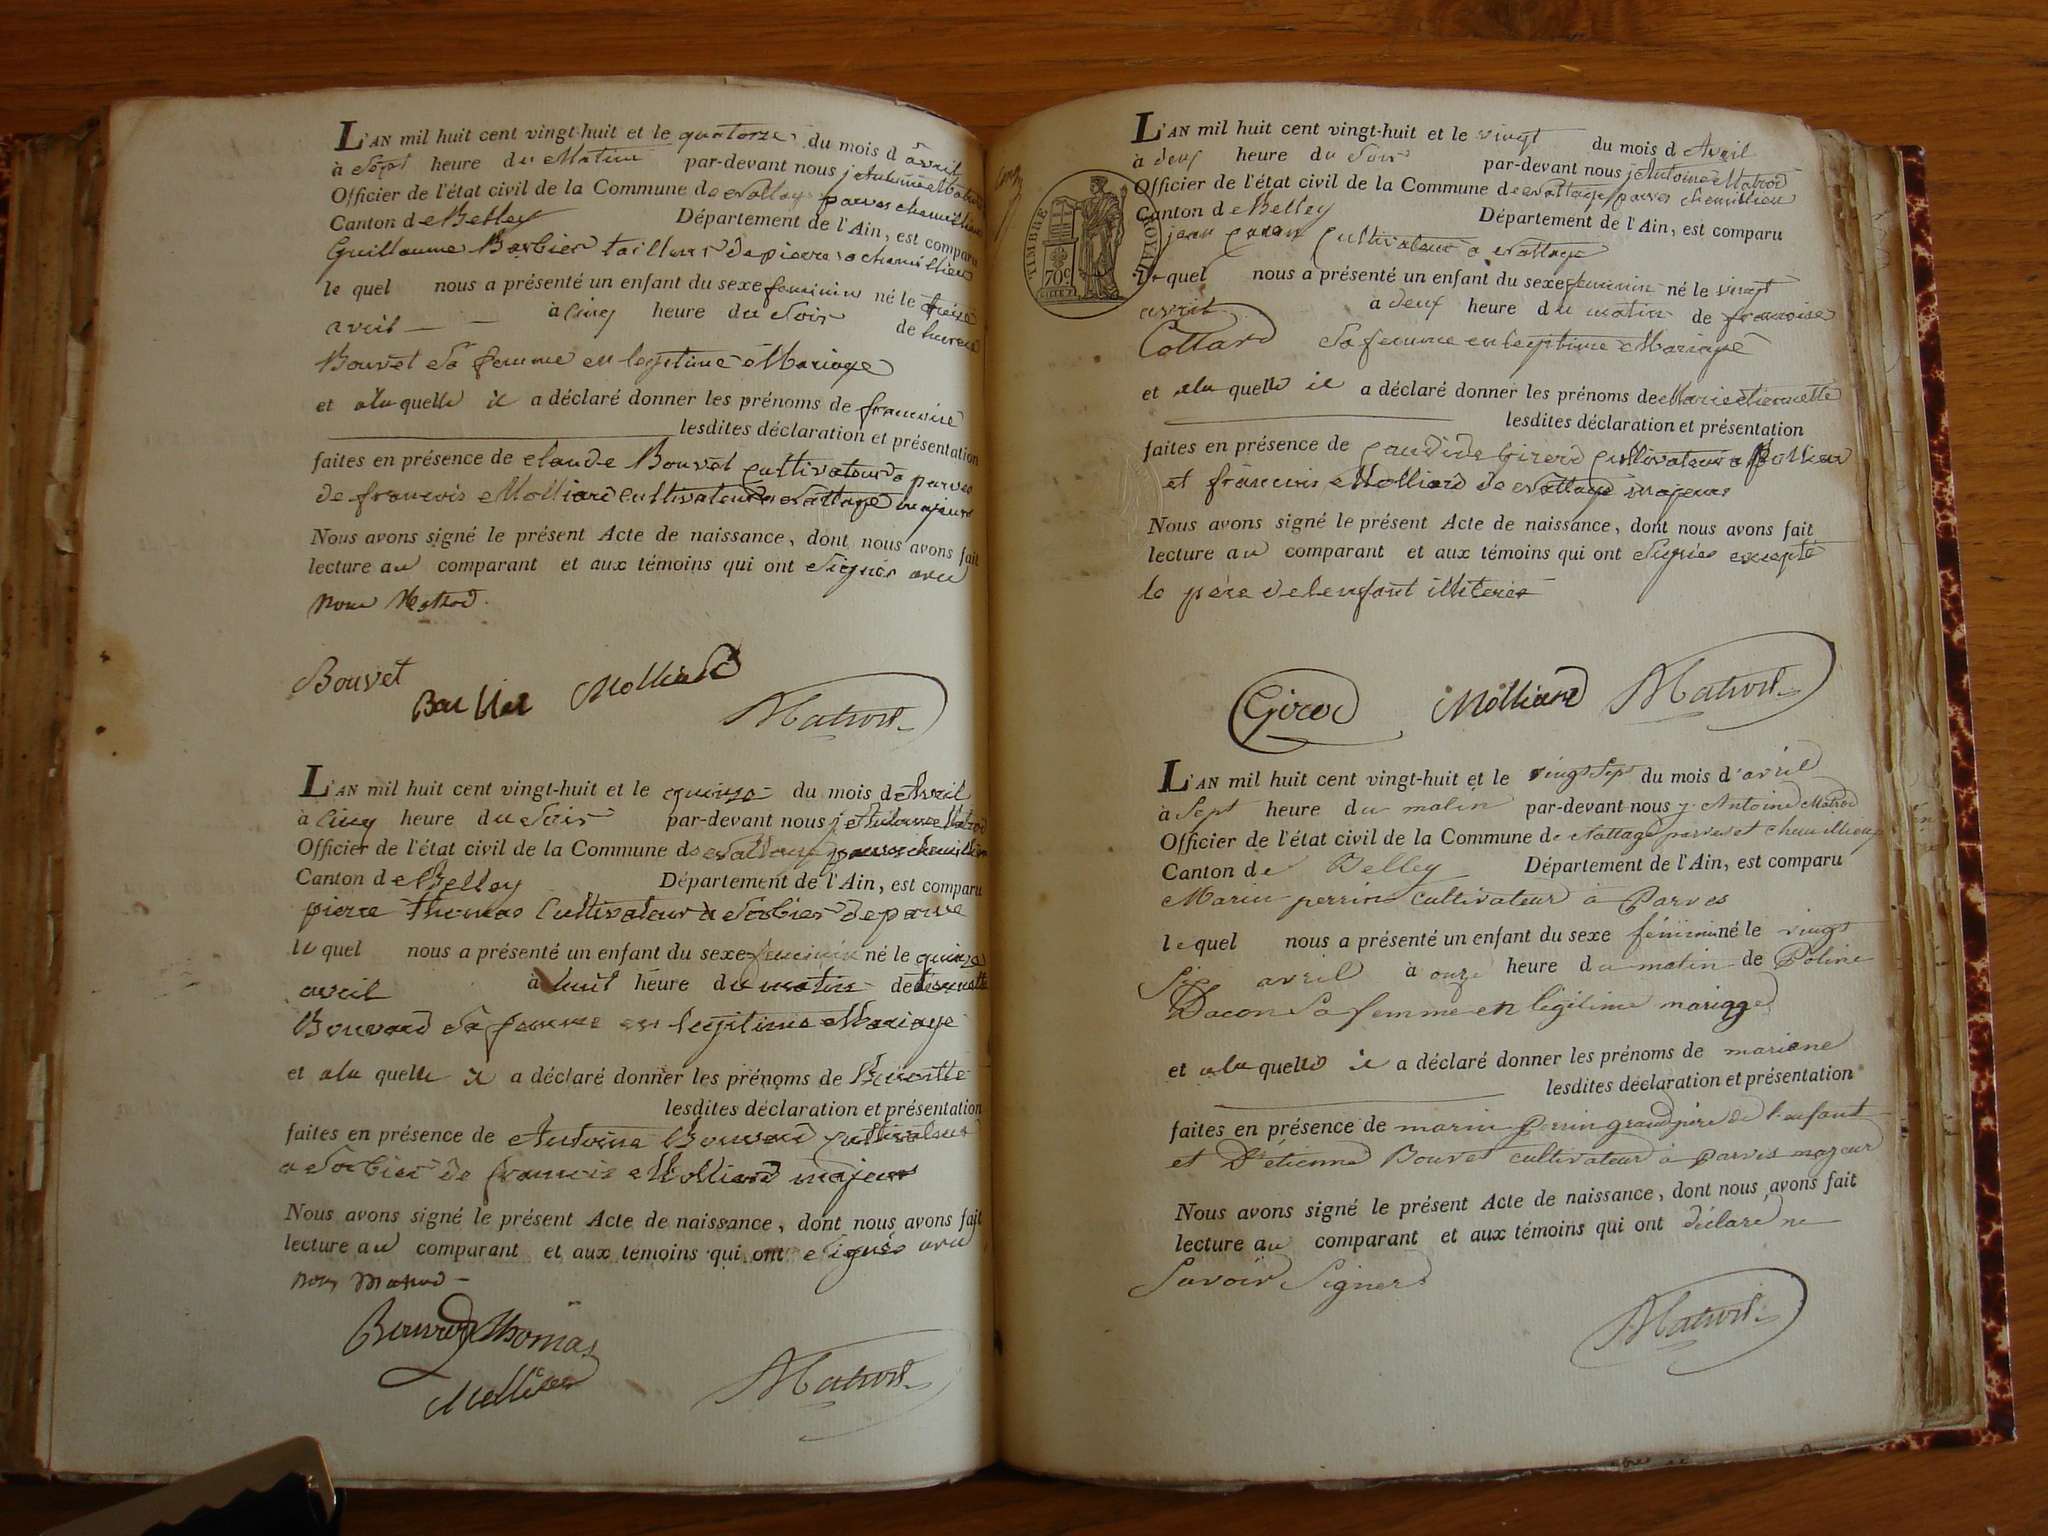 L'AN mil huit cent vingt-huit et le quatorze du mois d avril
à Sept heure du Matin par-devant nous j Antoine Matrod
Officier de l'état civil de la Commune de Nattage parves chemillieu
Canton de Belley Département de l'Ain, est comparu
Guillaume Barbier tailleur de pierre a chemillieu
le quel nous a présenté un enfant du sexe feminin né le treize
avril à Cinq heure du Soir de
Bouvet Sa femme en legitime Mariage
et a la quelle il a déclaré donner les prénoms de francoise
lesdites déclaration et présentation
faites en présence de claude Bouvet cultivateur a parves
de francois Molliard cultivateur a Nattage majeurs
Nous avons signé le présent Acte de naissance, dont nous avons fait
lecture au comparant et aux témoins qui ont Signés avec
Nous Matrod.
Bouvet Molliard
Matrod
L'AN mil huit cent vingt-huit et le quinze du mois d Avril
à Cinq heure du Soir par-devant nous j Antoine Matrod
Officier de l'état civil de la Commune de Nattage parves chemillieu
Canton de Belley Département de l'Ain, est comparu
pierre Thomas Cultivateur à Sorbier de parve
le quel nous a présenté un enfant du sexe feminin né le quinze
avril à huit heure du matin de
Bouvard Sa femme en legitime Mariage
et a la quelle il a déclaré donner les prénoms de Benoitte
lesdites déclaration et présentation
faites en présence de Antoine Bouvard cultivateur
a Sorbier de francois Molliard majeurs
Nous avons signé le présent Acte de naissance, dont nous avons fait
lecture au comparant et aux témoins qui ont Signés avec
Nous Matrod
Bouvard Thomas
Molliard Matrod
TIMBRE ROYAL
70c
L'AN mil huit cent vingt-huit et le vingt du mois d Avril
à deux heure du Soir par-devant nous j Antoine Matrod
Officier de l'état civil de la Commune de Nattage parves chemillieu
Canton de Belley Département de l'Ain, est comparu
jean Cultivateur a Nattage
le quel nous a présenté un enfant du sexe feminin né le vingt
avril à deux heure du matin de francoise
Collard Sa femme en legitime Mariage
et a la quelle il a déclaré donner les prénoms de Marie
lesdites déclaration et présentation
faites en présence de Girerd cultivateur a
et francois Molliard de Nattage majeurs
Nous avons signé le présent Acte de naissance, dont nous avons fait
lecture au comparant et aux témoins qui ont Signés excepté
le père de lenfant
Molliard Matrod
L'AN mil huit cent vingt-huit et le vingt Sept du mois d'avril
à Sept heure du matin par-devant nous j. Antoine Matrod
Officier de l'état civil de la Commune de Nattage parves et chemillieu
Canton de Belley Département de l'Ain, est comparu
Marin perrin cultivateur à Parves
le quel nous a présenté un enfant du sexe féminin né le vingt
Six avril à onze heure du matin de Poline
Dacon Sa femme en légitime mariage
et a la quelle il a déclaré donner les prénoms de mariane
lesdites déclaration et présentation
faites en présence de marin Perrin grand père de l'enfant
et D'étienne Bouvet cultivateur à parves majeur
Nous avons signé le présent Acte de naissance, dont nous avons fait
lecture au comparant et aux témoins qui ont déclaré ne
Savoir Signer
Matrod